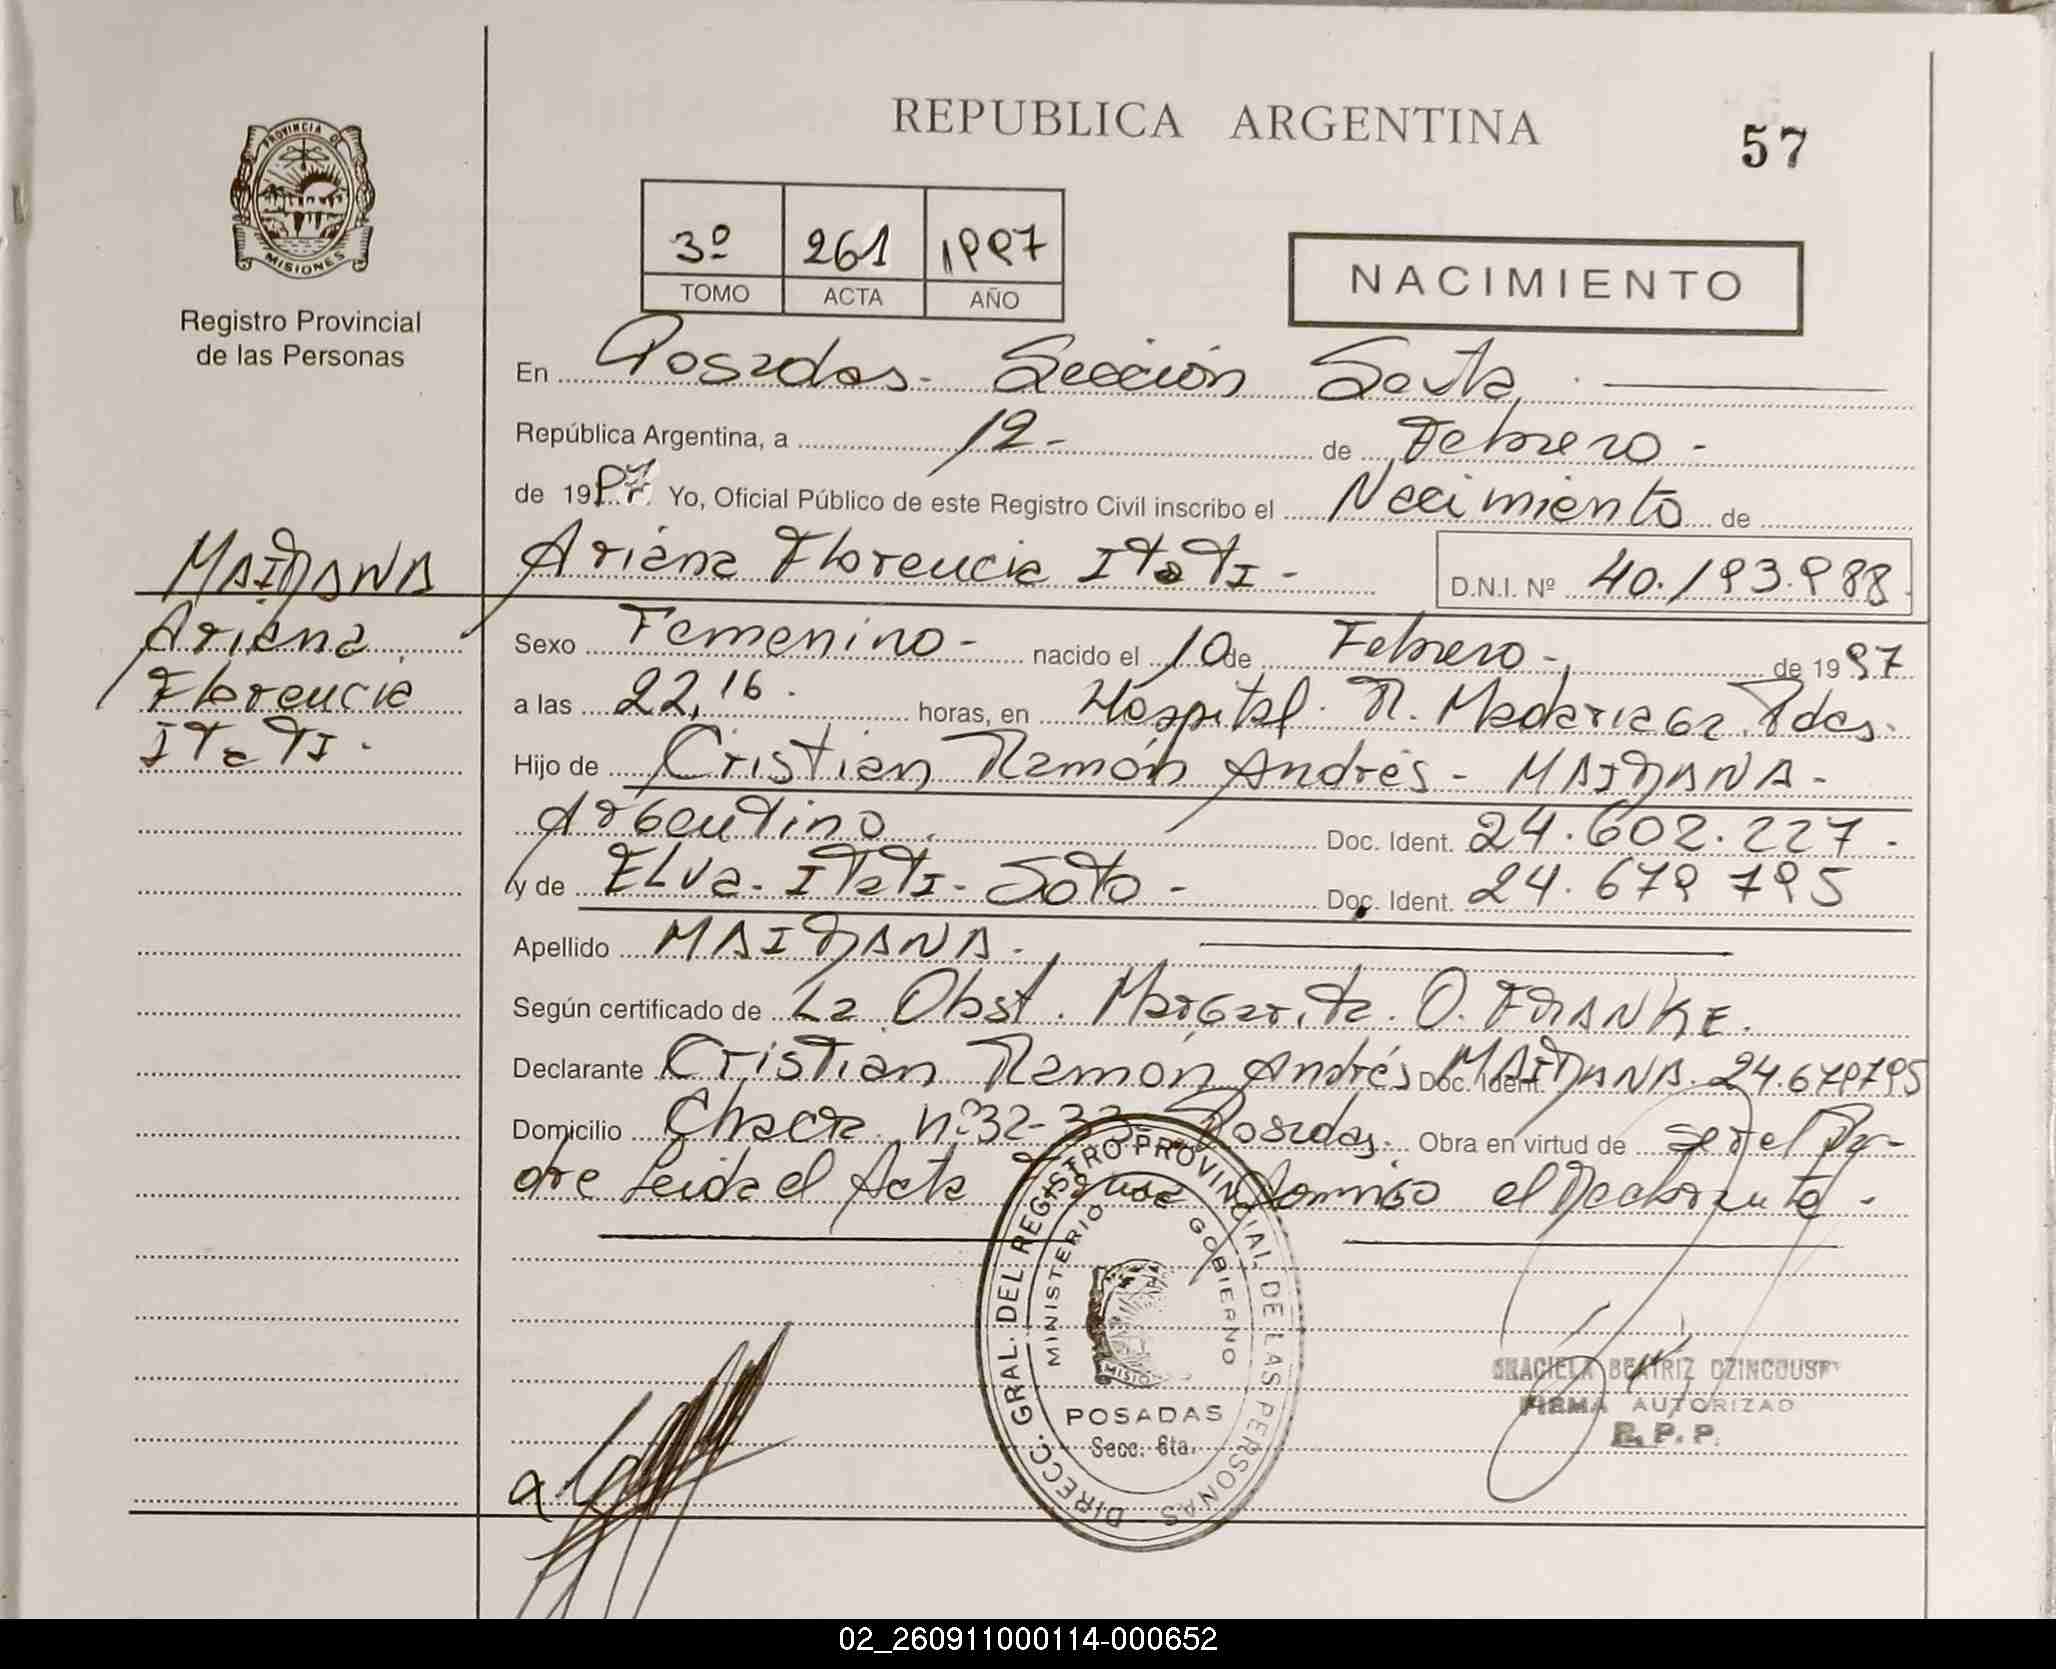 REPUBLICA ARGENTINA
57
PROVINCIA DE
MISIONES
Registro Provincial
de las Personas
3º 261 1997
TOMO ACTA AÑO
NACIMIENTO
En Posadas. Sección Sexta.
República Argentina, a 12- de Febrero -
de 1997. Yo, Oficial Público de este Registro Civil inscribo el Nacimiento de
Ariana Florencia ITaTI - D.N.I. Nº 40.193.988.
MAIDANA
Ariana
Florencia
ITaTI.
Sexo Femenino - nacido el 10 de Febrero -, de 1997
a las 22,16. horas, en Hospital. R. Madariaga. Pdas.
Hijo de Cristian Ramón Andrés - MAIDANA -
Argentino. Doc. Ident. 24.602.227 -
y de ELva - ITaTI - Soto - Doc. Ident. 24.679 795
Apellido MAIDANA.
Según certificado de La Obst. Margarita. O. FRANKE.
Declarante Cristian Ramón Andrés MAIDANA. Doc. Ident. 24.679795
Domicilio Chacra nº 32-33- Posadas. Obra en virtud de ser el Pa-
dre Leida el Acta la Firma Conmigo el Declarante -
DIRECC. GRAL. DEL REGISTRO PROVINCIAL DE LAS PERSONAS
MINISTERIO GOBIERNO
POSADAS
Secc. 6ta.
GRACIELA BEATRIZ
FIRMA AUTORIZAD
R. P. P.
02_260911000114-000652